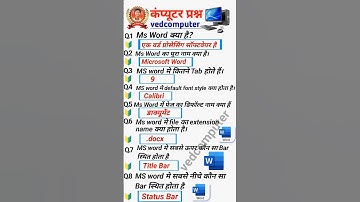 कंप्यूटर प्रश्न
vedcomputer
Q.1 Ms Word क्या है?
एक वर्ड प्रोसेसिंग सॉफ्टवेयर है
Q.2 Ms Word का पुरा नाम क्या है।
Microsoft Word
Q.3 MS word में कितने Tab होते हैं।
9
Q.4 MS word में default font style क्या होता है।
Calibri
Q.5 Ms Word में पेज का डिफॉल्ट नाम क्या हैं
डाक्यूमेंट
Q.6 Ms word में file का extension
name क्या होता है।
.docx
Q.7 MS word में सबसे ऊपर कौन सा Bar
स्थित होता है
Title Bar
Q.8 MS word में सबसे नीचे कौन सा
Bar स्थित होता है
Status Bar
vedcomputer